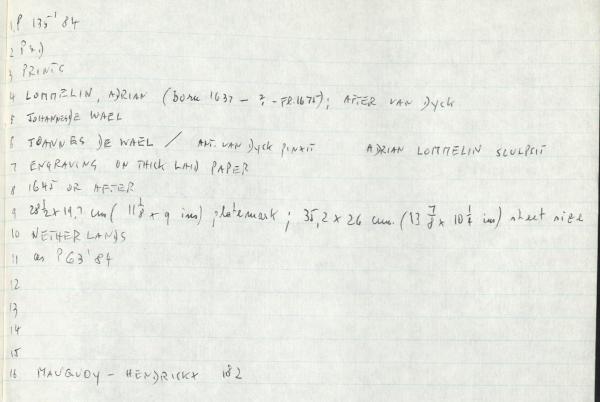 1 P 135-1 84
2 P&D
3 PRINTS
4 LOMMELIN, ADRIAN (born 1637 - ? - FR. 1675); AFTER VAN DYCK
5 JOHANNES DE WAEL
6 JOANNES DE WAEL / ANT. VAN DYCK PINXIT ADRIAN LOMMELIN SCULPSIT
7 ENGRAVING ON THICK LAID PAPER
8 1645 OR AFTER
9 28½ x 19,7 cm ( 11 1/8 x 9 ins) platemark; 35,2 x 26 cm. (13 7/8 x 10 1/4 in) sheet size
10 NETHERLANDS
11 as P 63'84
12
13
14
15
16 MAUQUOY - HENDRICKX 182